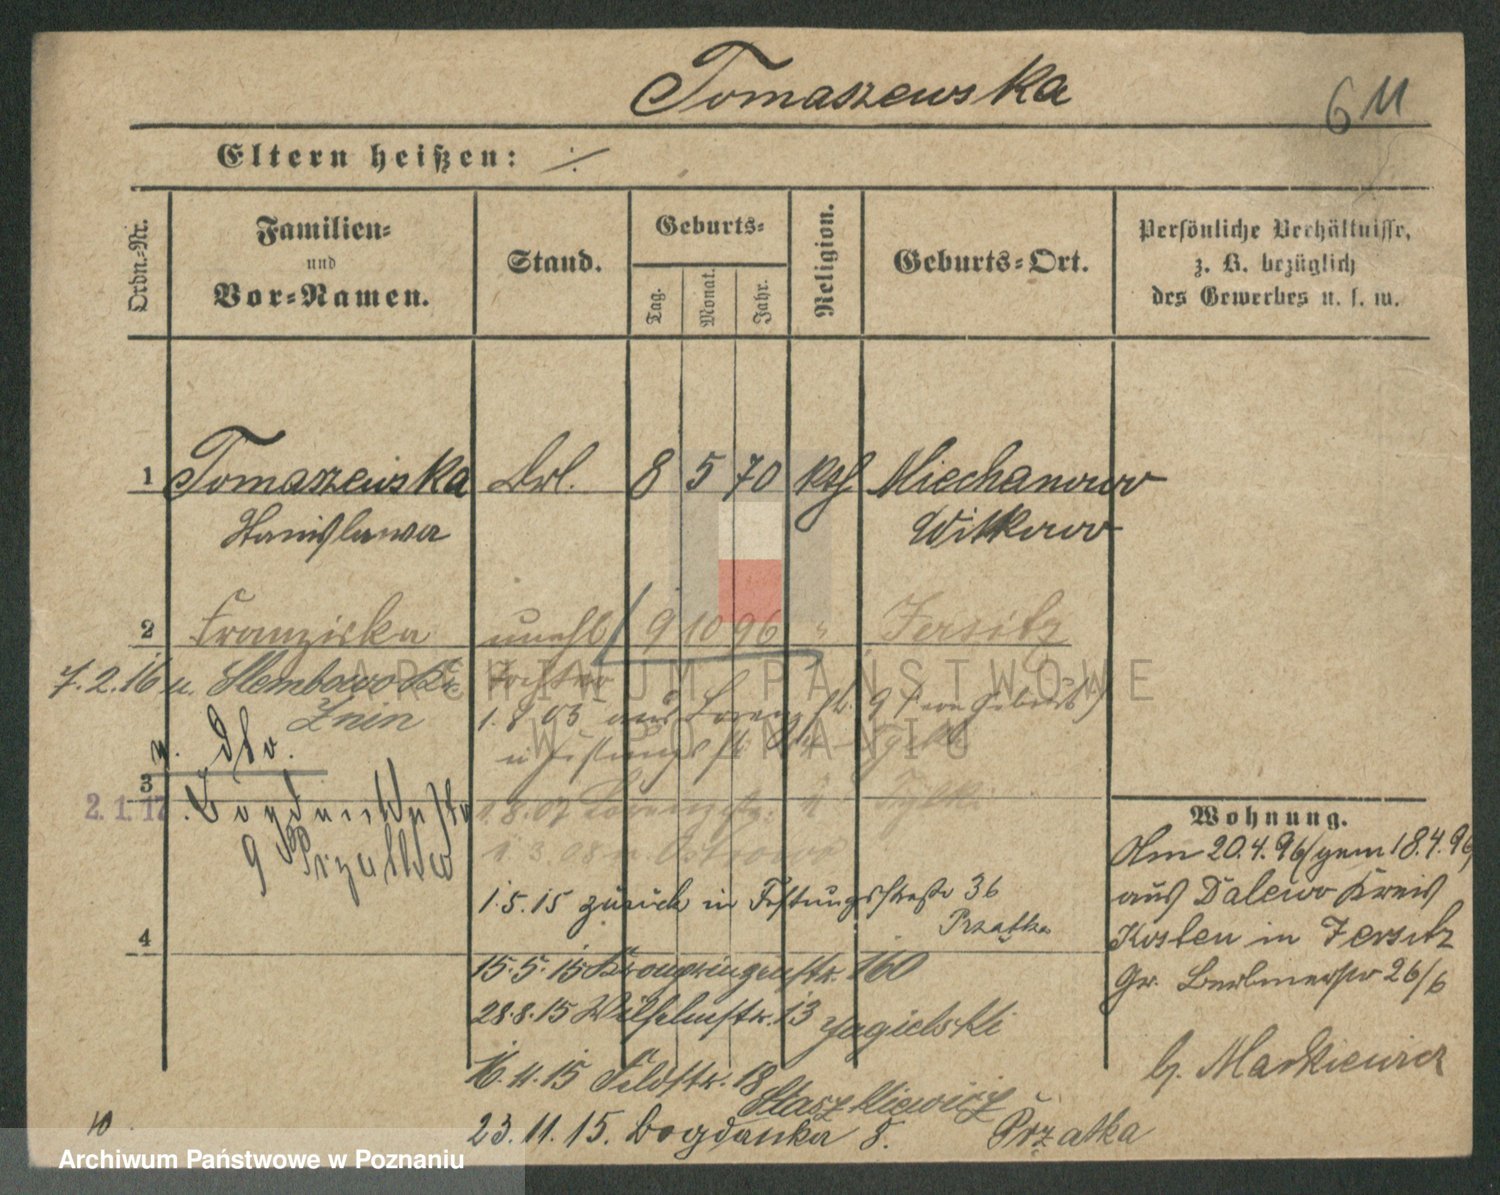 Tomaszewska
6 11
Eltern heißen: ./.
Ordn.-Nr.
Familien-
und
Vor-Namen.
Stand.
Geburts-
Tag.
Monat.
Jahr.
Religion.
Geburts-Ort.
Persönliche Verhältnisse,
z. B. bezüglich
des Gewerbes u. s. w.
1 Tomaszewska 8 5 70 kth Miechanowo
Stanislawa Witkowo
2 Franziska unehl 9 10 96 " Jersitz
7.2.16 n. Tochter
Znin 1.8.05 aus
n. dto.
3
2.1.17 1.8.07
9 Przalka 1.3.08 n. Ostrowo
1.5.15 zurück in Festungsstraße 36
Przatka
4
15.5.15 Kronprinzenstr. 160
28.8.15 Wilhelmstr. 13 Jagielski
16.11.15 Feldstr. 18
Staszkiewicz
23.11.15. Bogdanka 8. Przatka
Wohnung.
Am 20.4.96 gem 18.4.96
aus Dalewo Kreis
Kosten in Jersitz
Gr. Berlinerstr 26/6
b. Markiewicz
10
ARCHIWUM PAŃSTWOWE
W POZNANIU
Archiwum Państwowe w Poznaniu